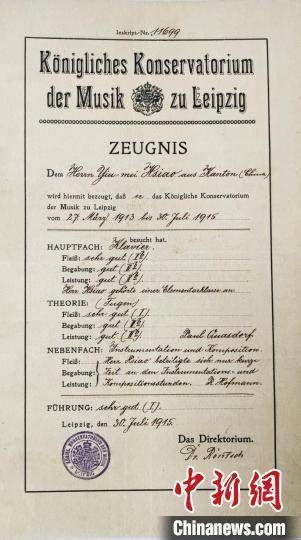 Inskript.-Nr. 11699
Königliches Konservatorium
der Musik zu Leipzig
ZEUGNIS
Dem Herrn Yiu mei Hsiao aus Kanton (China)
wird hiermit bezeugt, daß er das Königliche Konservatorium
der Musik zu Leipzig
vom 27. März 1913 bis 30. Juli 1915
besucht hat.
HAUPTFACH: Klavier
Fleiß: sehr gut
Begabung: gut
Leistung: gut
Herr Hsiao gehört einer Elementarklasse an.
THEORIE: (Fugen)
Fleiß: sehr gut (I)
Begabung: gut
Leistung: gut Paul Quasdorf
NEBENFACH: Instrumentation und Komposition.
Fleiß: Herr Hsiao beteiligte sich nur kurze
Begabung: Zeit an den Instrumentations- und
Leistung: Kompositionsstunden. R. Hofmann.
FÜHRUNG: sehr gut (I).
Leipzig, den 30. Juli 1915.
Das Direktorium.
Dr. Röntsch
中新网
Chinanews.com